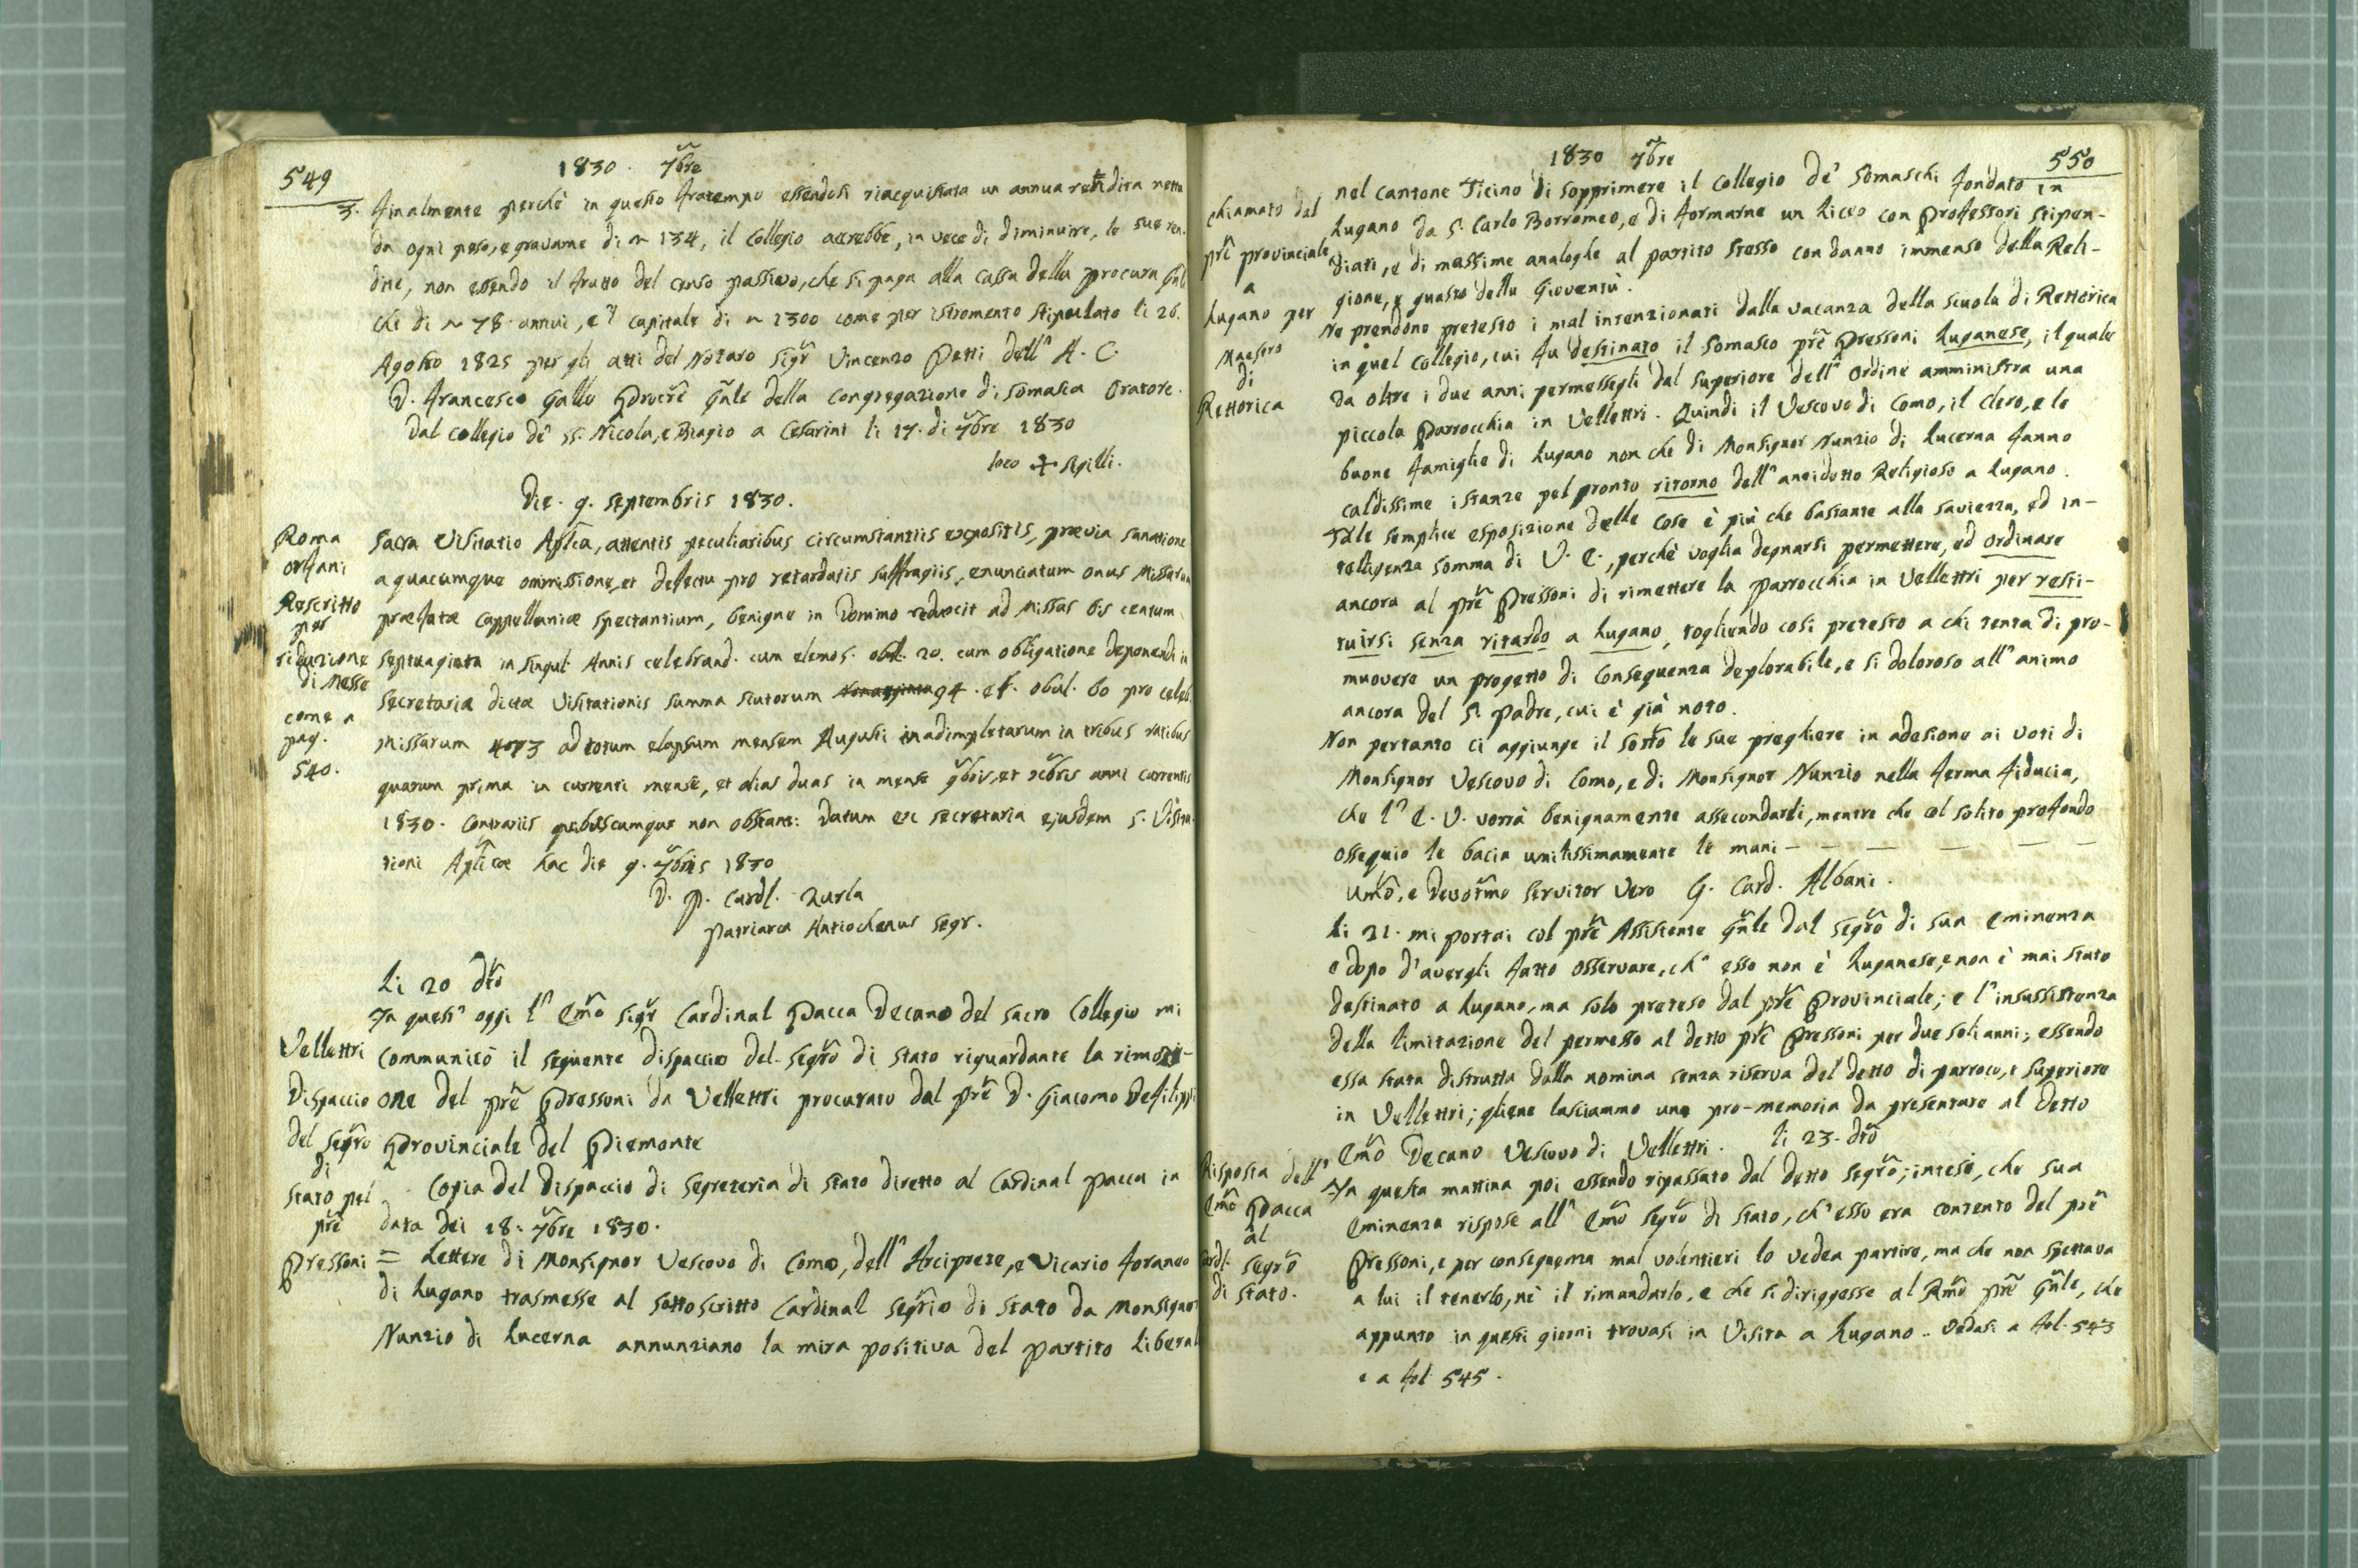 549
1830. 7bre
3. finalmente perchè in questo fratempo essendosi riacquistata un annua rendita netta
da ogni peso, e gravame di ~ 134, il Collegio accrebbe, in vece di diminuire, le sue ren-
dite, non essendo il frutto del censo passivo, che si paga alla cassa della procura Gñle
che di ~ 78 annui, e'l capitale di ~ 1300 come per istromento stipulato li 26.
Agosto 1825 per gli atti del Notaro Sigr̃ Vincenzo Petti dell' A. C.
D. Francesco Gallo Procr̃e Gñle della Congregazione di Somasca Oratore.
Dal Collegio de' SS. Nicola, e Biagio a Cesarini li 17. di 7bre 1830
loco + Sigilli.
Die. 9. Septembris 1830.
Roma
Orfani
Rescritto
per
riduzione
di Messe
come a
pag.
540.
Sacra Visitatio Aplica, attentis peculiaribus circumstantiis expositis, prævia sanatione
a quacumque ommissione, et defectu pro retardatis suffragiis, enunciatum onus Missarum
præfatæ Cappellaniæ spectantium, benigne in Domino reducit ad Missas bis centum
septuaginta in singul. Annis celebrand. cum elemos. obul. 20. cum obligatione deponendi in
Secretaria dictæ Visitationis summa scutorum Nonaginta 94. et. obul. 60 pro celeb.
Missarum 473 ad totum elapsum mensem Augusti inadimpletarum in tribus ratibus
quarum prima in currenti mense, et alias duas in mense 9bris, et Xbris anni currentis
1830. Contrariis quibuscumque non obstant: Datum ex Secretaria ejusdem S. Visita-
tioni Aplicæ hac die 9. 7bris 1830
D. P. Cardl. Zurla
Patriarca Antiochenus Segr.
Li 20 dto
Vellettri
Dispaccio
del Segro
di
Stato pel
pr̃e
Pressoni
In quest' oggi l' Em̃o Sigr̃ Cardinal Pacca Decano del Sacro Collegio mi
communicò il seguente dispaccio del Segr̃o di Stato riguardante la rimozi-
one del pr̃e Pressoni da Vellettri procurato dal pr̃e D. Giacomo Defilippi
Provinciale del Piemonte
Copia del Dispaccio di Segreteria di Stato diretto al Cardinal Pacca in
data dei 18. 7bre 1830.
= Lettere di Monsignor Vescovo di Como, dell' Arciprete, e Vicario foraneo
di Lugano trasmesse al sottoscritto Cardinal Segrio di Stato da Monsignor
Nunzio di Lucerna annunziano la mira positiva del partito liberal
1830 7bre
550
chiamato dal
pr̃e provinciale
a
Lugano per
Maestro
di
Rettorica
nel cantone Ticino di sopprimere il Collegio de' Somaschi fondato in
Lugano da S. Carlo Borromeo, e di formarne un Liceo con Professori stipen-
diati, e di massime analoghe al partito stesso con danno immenso della Reli-
gione, e guasto della Gioventù.
Ne prendono pretesto i mal intenzionati dalla vacanza della scuola di Rettorica
in quel Collegio, cui fu destinato il Somasco pr̃e Pressoni Luganese, il quale
da oltre i due anni permessegli dal superiore dell' Ordine amministra una
piccola Parrocchia in Vellettri. Quindi il Vescovo di Como, il Clero, e le
buone famiglie di Lugano non che di Monsignor Nunzio di Lucerna fanno
caldissime istanze pel pronto ritorno dell' anzidetto Religioso a Lugano.
Tale semplice esposizione delle cose è più che bastante alla saviezza, ed in-
telligenza somma di V. E., perchè voglia degnarsi permettere, ed ordinare
ancora al pr̃e Pressoni di rimettere la Parrocchia in Vellettri per resti-
tuirsi senza ritardo a Lugano, togliendo così pretesto a chi tenta di pro-
muovere un progetto di conseguenza deplorabile, e sì doloroso all' animo
ancora del S. Padre, cui è già noto.
Non pertanto ci aggiunge il sotto le sue preghiere in adesione ai voti di
Monsignor Vescovo di Como, e di Monsignor Nunzio nella ferma fiducia,
che l' E. V. vorrà benignamente assecondarli, mentre che col solito profondo
ossequio le bacia umilissimamente le mani - — — — — —
Um̃o, e Devotm̃o Servitor Vero G. Card. Albani.
Li 21. mi portai col pr̃e Assistente Gñle dal Segr̃o di sua Eminenza
e dopo d'avergli fatto osservare, ch' esso non è Luganese, e non è mai stato
destinato a Lugano, ma solo preteso dal pr̃e Provinciale; e l'insussistenza
della limitazione del permesso al detto pr̃e Pressoni per due soli anni; essendo
essa stata distrutta dalla nomina senza riserva del detto di parroco, e Superiore
in Vellettri; gliene lasciammo una pro-memoria da presentare al detto
Em̃o Decano Vescovo di Vellettri. li 23. dto
Risposta dell'
Em̃o Pacca
al
Cardl. Segr̃o
di Stato.
In questa mattina poi essendo ripassato dal detto Segr̃o; intesi, che sua
Eminenza rispose all' Em̃o Segr̃o di Stato, ch'esso era contento del pr̃e
Pressoni, e per conseguenza mal volentieri lo vedea partire, ma che non spettava
a lui il tenerlo, nè il rimandarlo, e che si diriggesse al Rm̃o pr̃e Gñle, che
appunto in questi giorni trovasi in Visita a Lugano. Vedasi a fol. 543
e a fol 545.